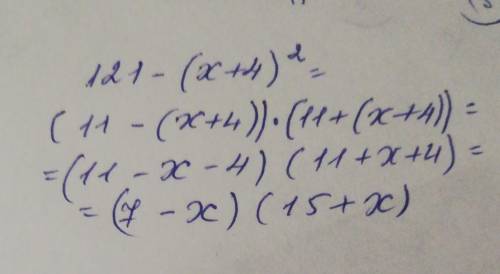 121 - (x+4)² =
(11 - (x+4))·(11+(x+4)) =
= (11 - x - 4) (11 + x + 4) =
= (7 - x) (15 + x)